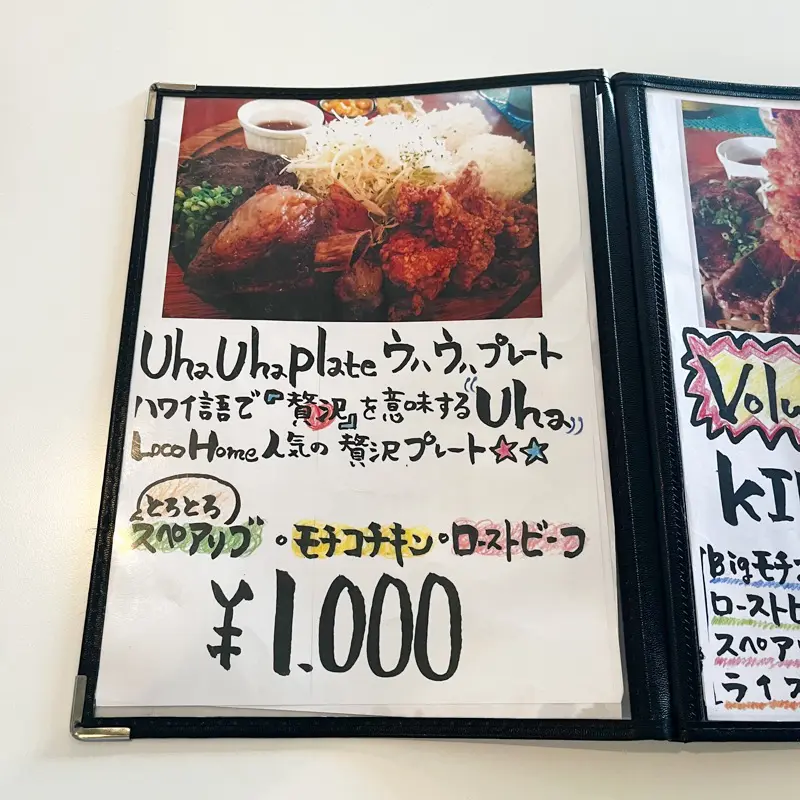 Uha Uha plate ウハウハプレート
ハワイ語で『贅沢』を意味する"Uha"
Loco Home人気の贅沢プレート☆☆
とろとろ
スペアリブ・モチコチキン・ローストビーフ
¥1.000
Volu
KI
Bigモチ
ローストビ
スペア
ライス